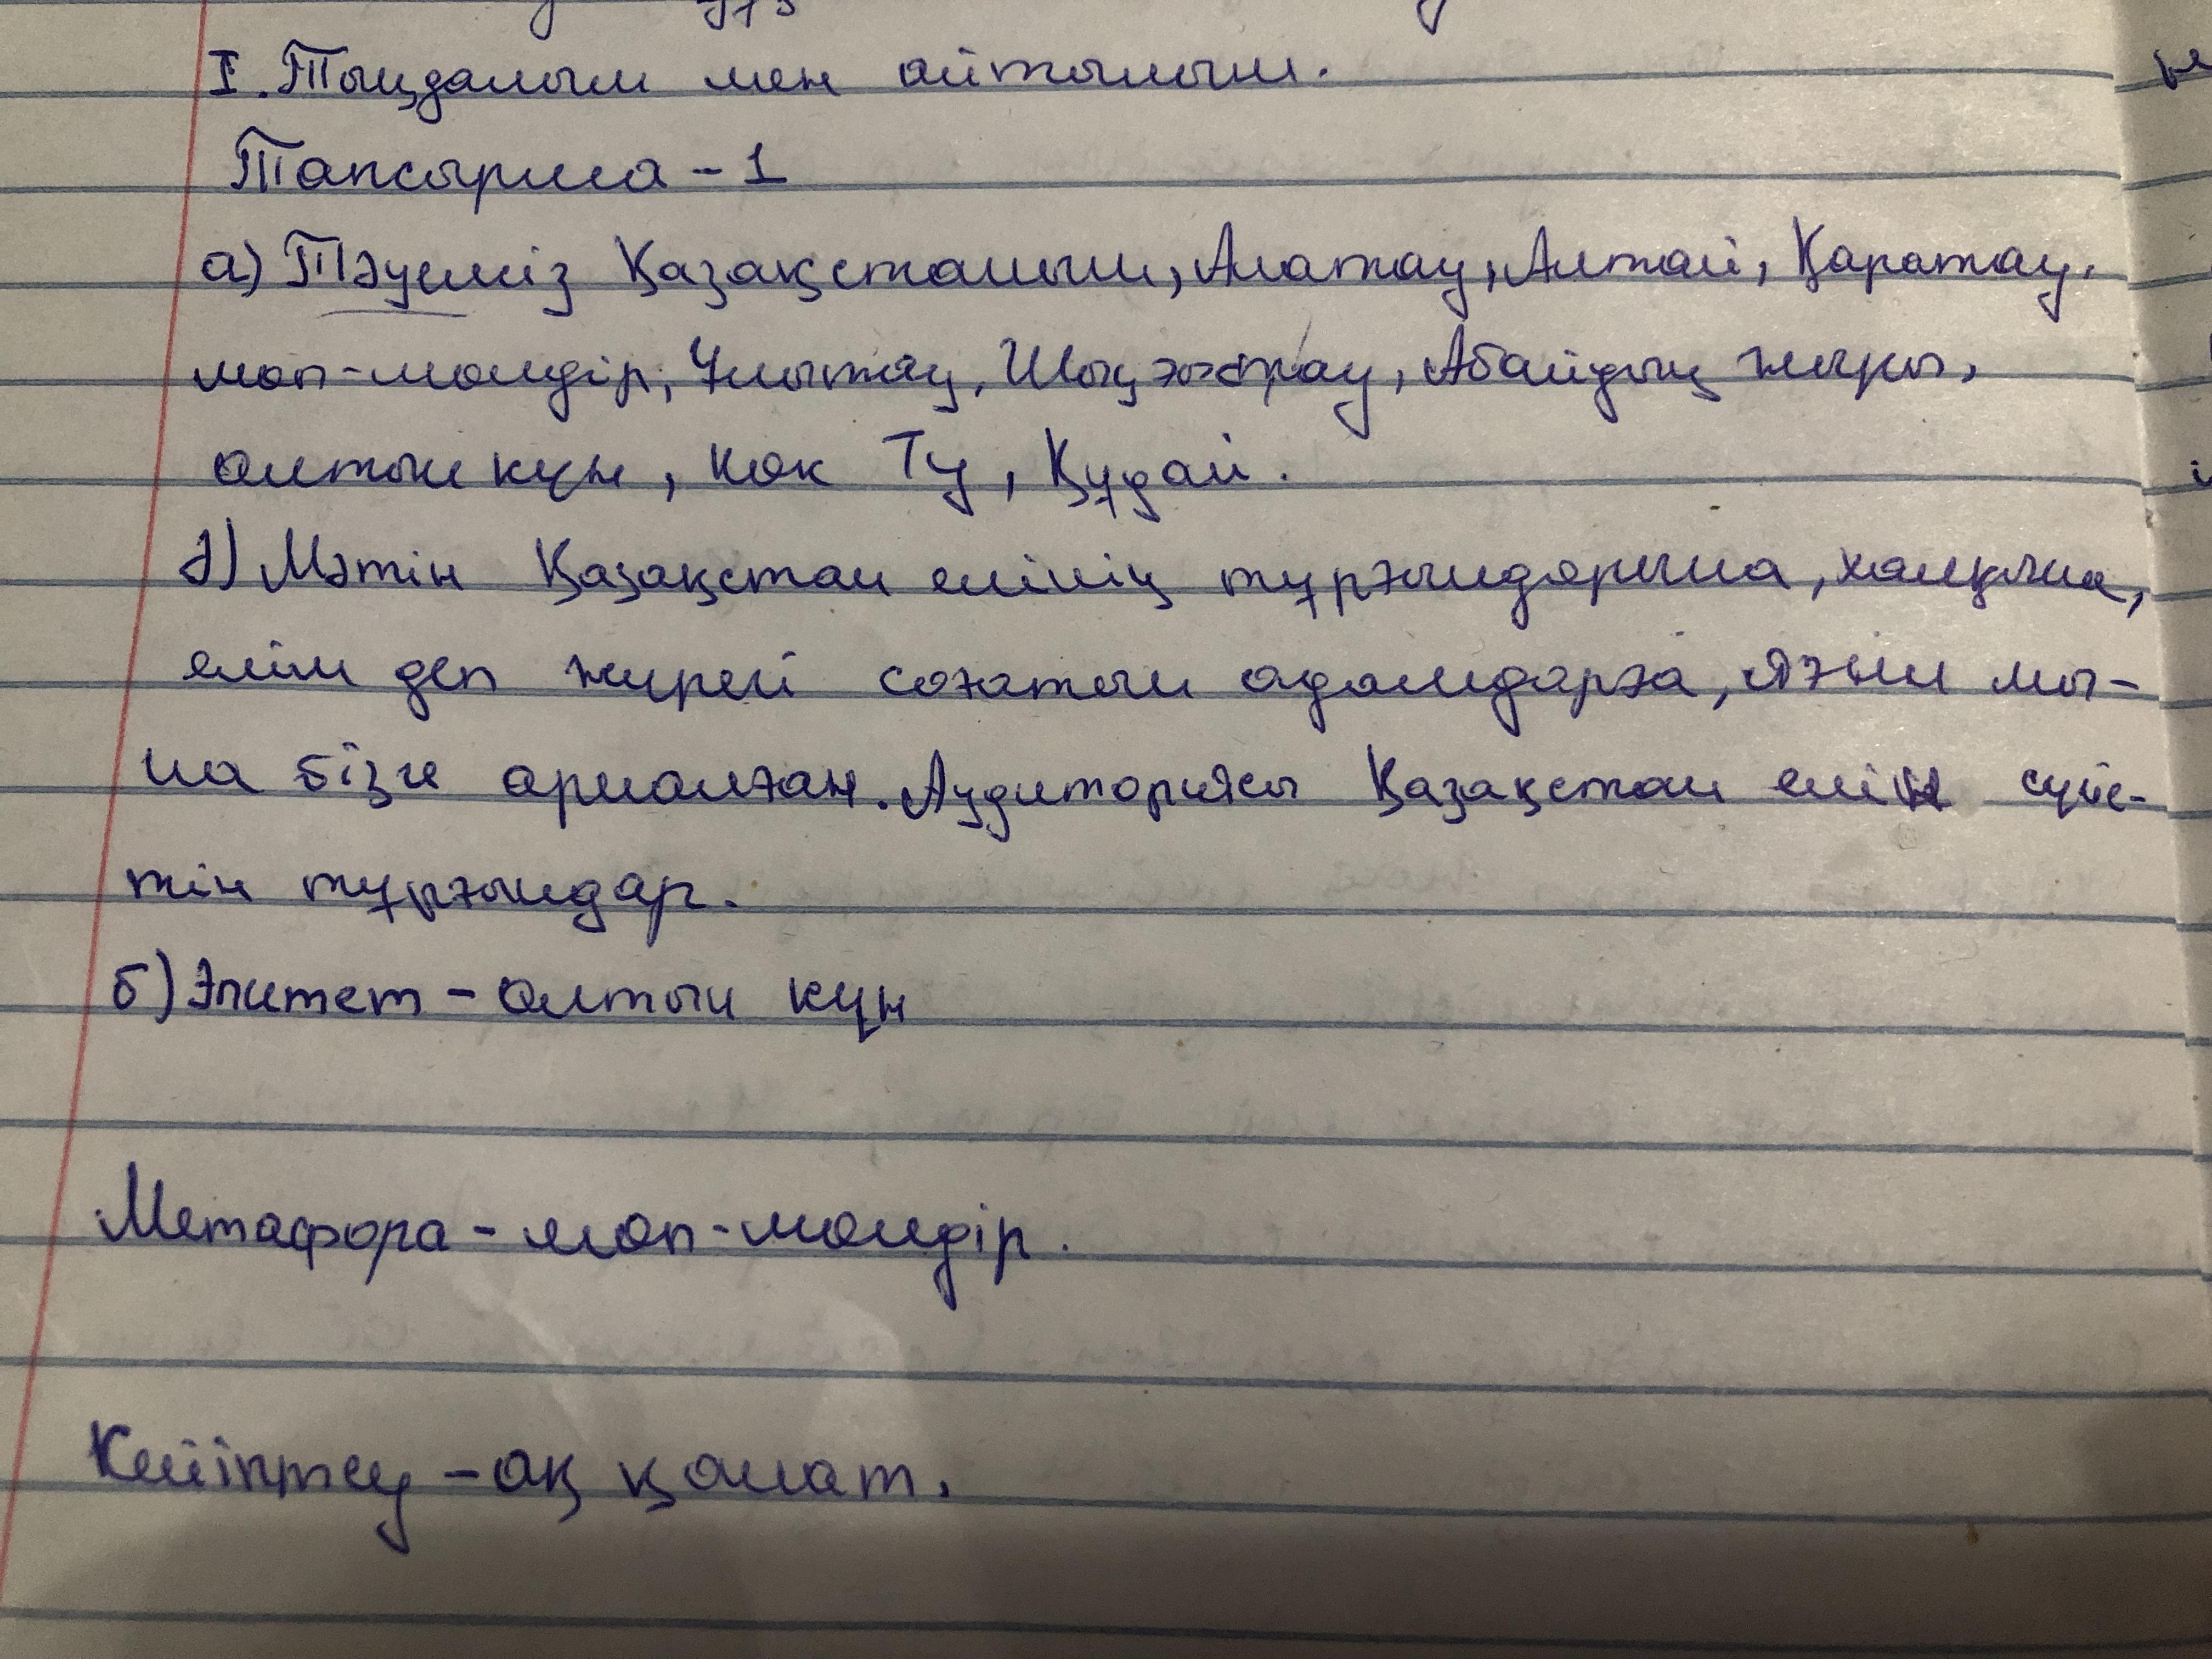 I. Тыңдалым мен айтылым.
Тапсырма - 1
а) Тәуелсіз Қазақстаным, Алатау, Алтай, Қаратау,
мөп-мөлдір, Ұлытау, Шыңғыстау, Абайдың жыры,
алтын күн, көк Ту, Құдай.
ә) Мәтін Қазақстан елінің тұрғындарына, халқына,
елім деп жүрегі соғатын адамдарға, яғни мы-
на бізге арналған. Аудиториясы Қазақстан елін сүйе-
тін тұрғындар.
б) Эпитет - алтын күн
Метафора - мөп-мөлдір.
Кейіптеу - ақ қанат.